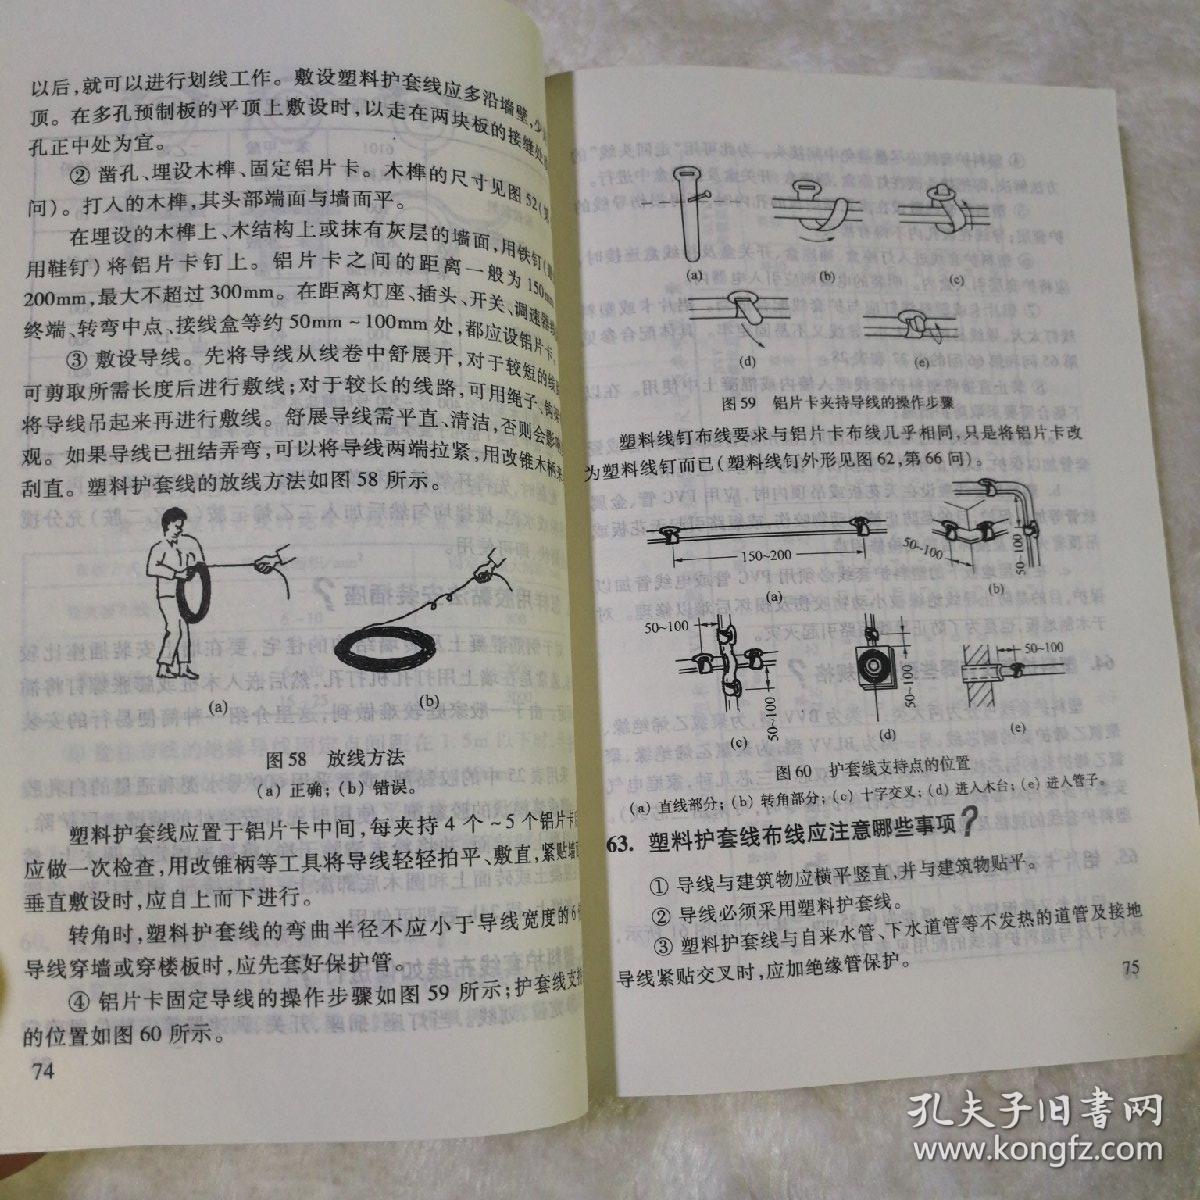 以后,就可以进行划线工作。敷设塑料护套线应多沿墙壁,少
顶。在多孔预制板的平顶上敷设时,以走在两块板的接缝处
孔正中处为宜。
② 凿孔、埋设木榫、固定铝片卡。木榫的尺寸见图52(
问)。打入的木榫,其头部端面与墙面平。
在埋设的木榫上、木结构上或抹有灰层的墙面,用铁钉(
用鞋钉)将铝片卡钉上。铝片卡之间的距离一般为150mm
200mm,最大不超过300mm。在距离灯座、插头、开关、调速器
终端、转弯中点、接线盒等约50mm~100mm处,都应设铝片卡。
③ 敷设导线。先将导线从线卷中舒展开,对于较短的线
可剪取所需长度后进行敷线;对于较长的线路,可用绳子、
将导线吊起来再进行敷线。舒展导线需平直、清洁,否则会影
观。如果导线已扭结弄弯,可以将导线两端拉紧,用改锥木柄
刮直。塑料护套线的放线方法如图58所示。
(a)
(b)
图58 放线方法
(a)正确;(b)错误。
塑料护套线应置于铝片卡中间,每夹持4个~5个铝片卡
应做一次检查,用改锥柄等工具将导线轻轻拍平、敷直,紧贴墙
垂直敷设时,应自上而下进行。
转角时,塑料护套线的弯曲半径不应小于导线宽度的6
导线穿墙或穿楼板时,应先套好保护管。
④ 铝片卡固定导线的操作步骤如图59所示;护套线支持
的位置如图60所示。
74
(a)
(b)
(c)
(d)
(e)
图59 铝片卡夹持导线的操作步骤
塑料线钉布线要求与铝片卡布线几乎相同,只是将铝片卡改
为塑料线钉而已(塑料线钉外形见图62,第66问)。
150~200
(a)
50~100
50~100
(b)
50~100
50~100
(c)
50~100
(d)
50~100
(e)
图60 护套线支持点的位置
(a)直线部分;(b)转角部分;(c)十字交叉;(d)进入木台;(e)进入管子。
63. 塑料护套线布线应注意哪些事项?
① 导线与建筑物应横平竖直,并与建筑物贴平。
② 导线必须采用塑料护套线。
③ 塑料护套线与自来水管、下水道管等不发热的道管及接地
导线紧贴交叉时,应加绝缘管保护。
75
孔夫子旧书网
www.kongfz.com